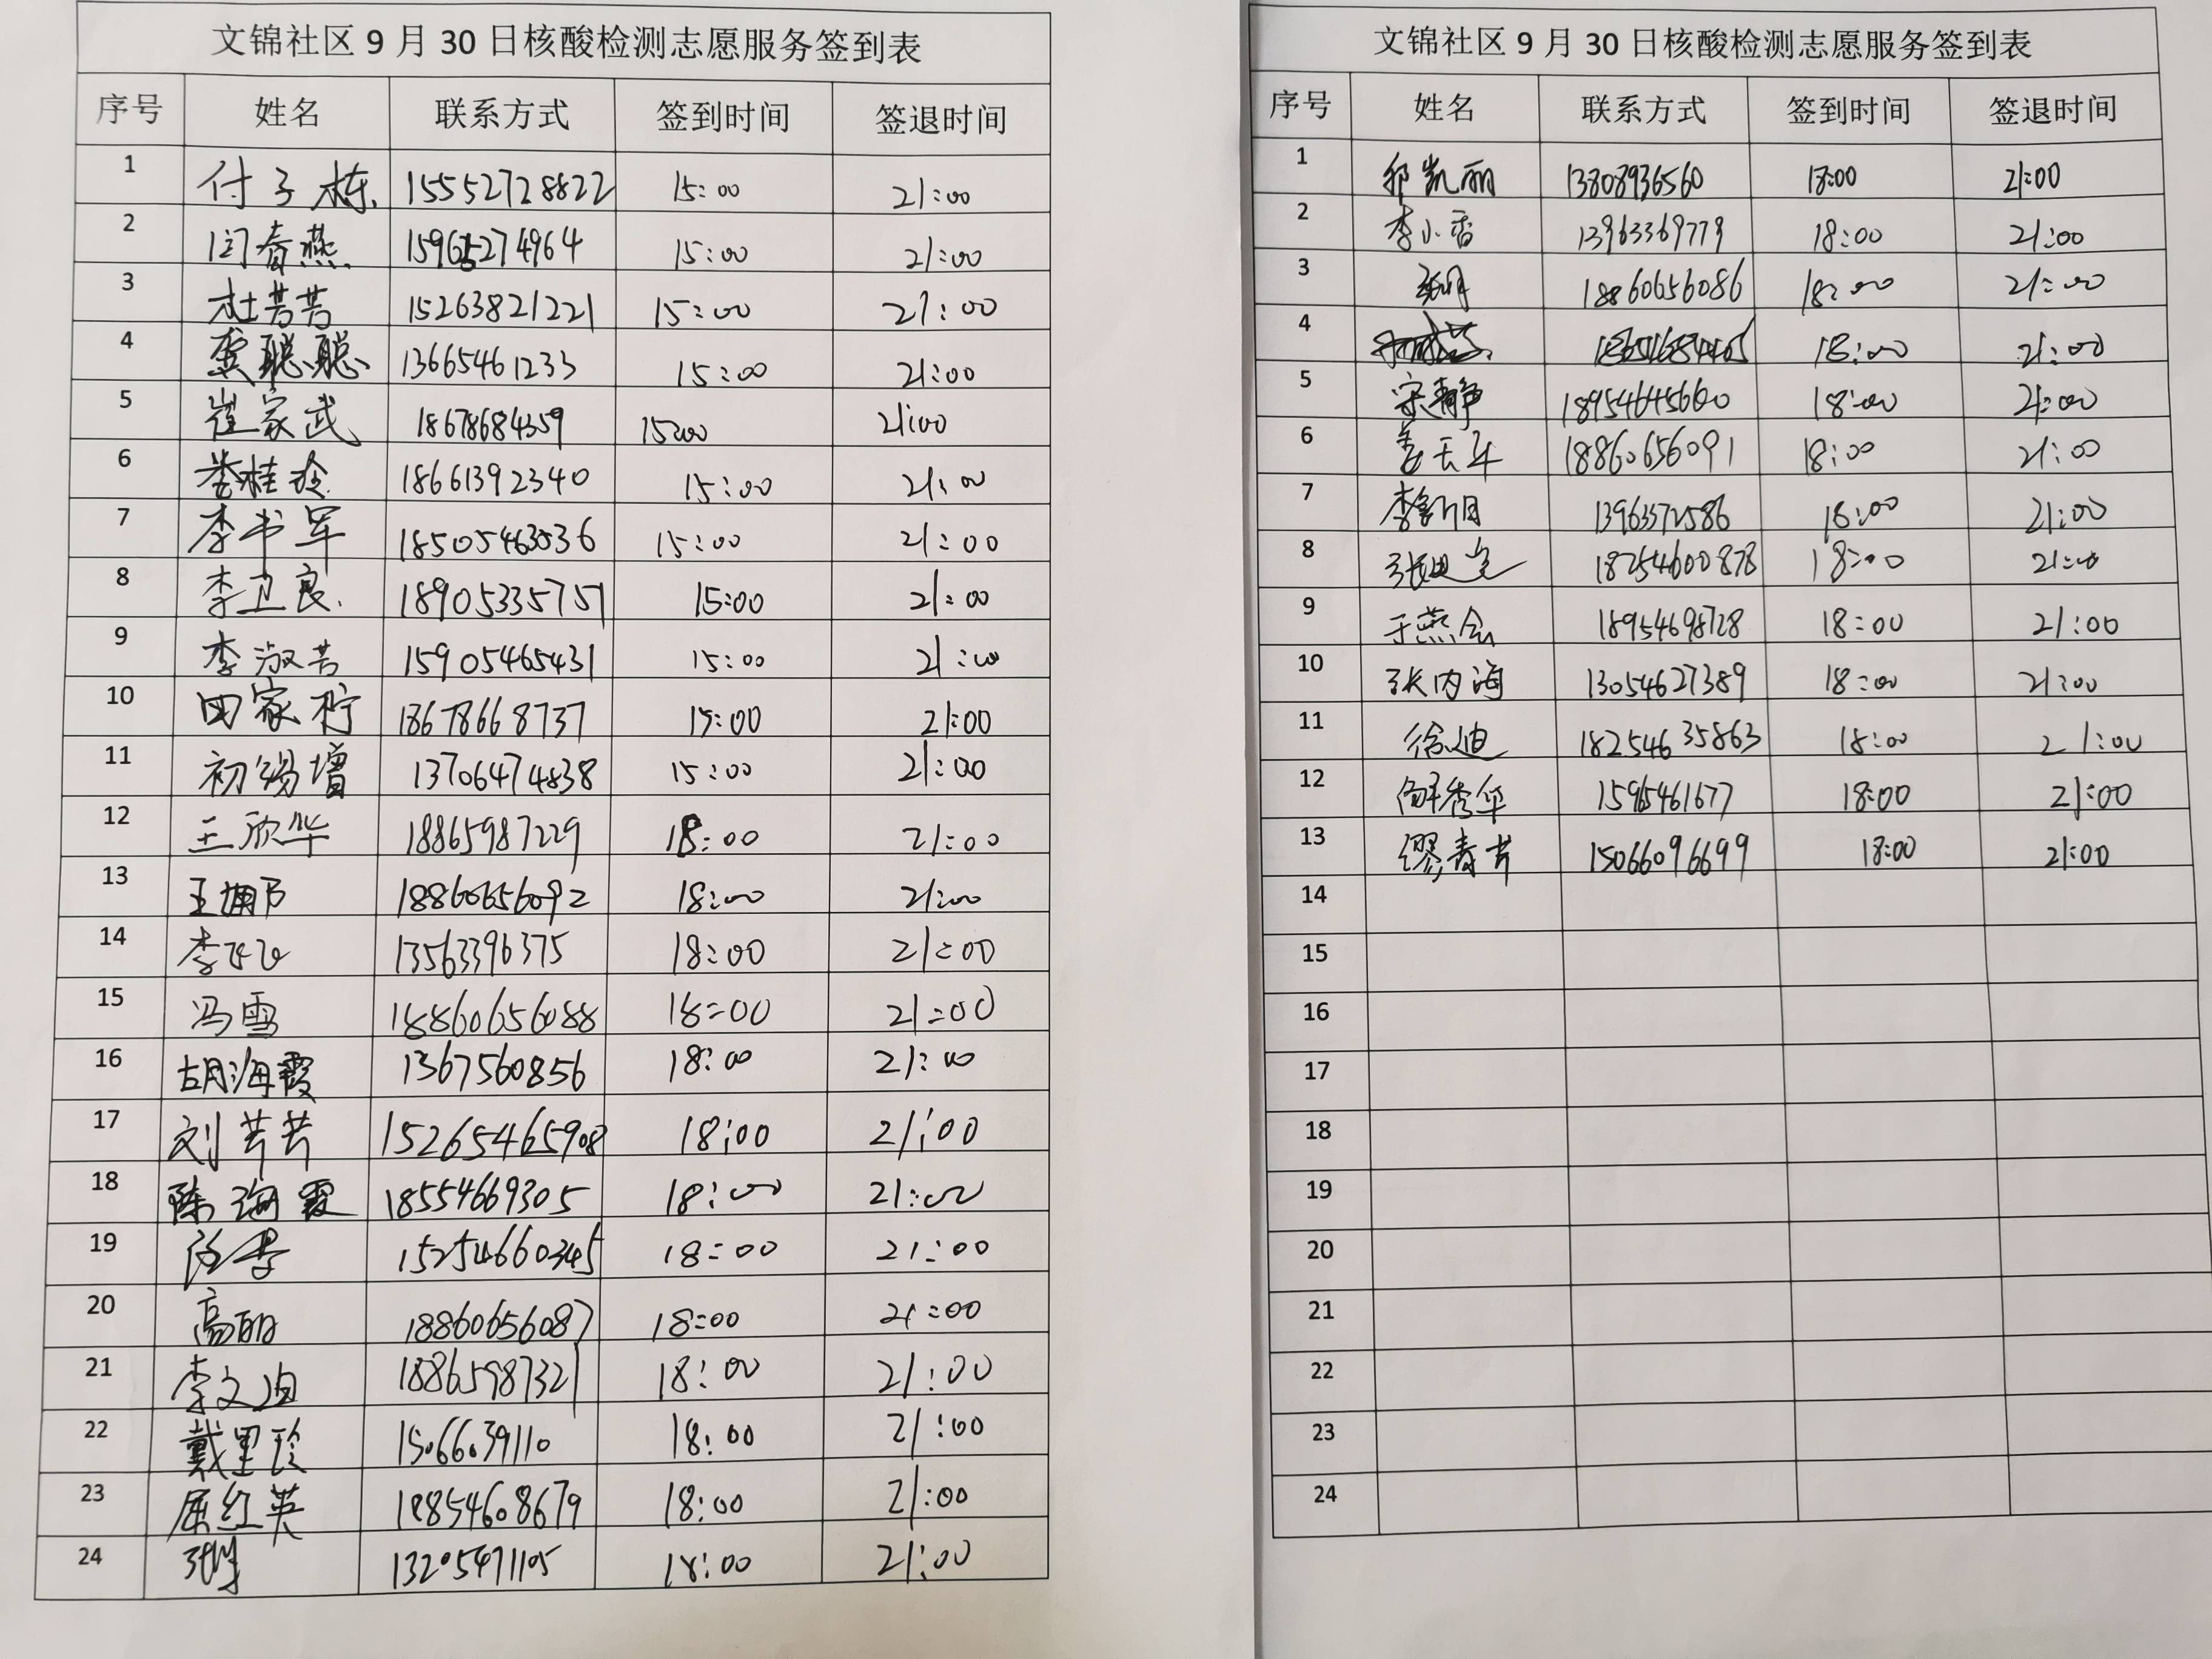 文锦社区9月30日核酸检测志愿服务签到表
序号 姓名 联系方式 签到时间 签退时间
1 付子栋 15552728822 15:00 21:00
2 闫春燕 15965274964 15:00 21:00
3 杜芳芳 15263821221 15:00 21:00
4 龚聪聪 13665461233 15:00 21:00
5 崔家武 18678684359 15:00 21:00
6 桂玲 18661392340 15:00 21:00
7 李书军 18505463536 15:00 21:00
8 李卫良 18905335751 15:00 21:00
9 李淑芳 15905465431 15:00 21:00
10 田家柠 18678668737 15:00 21:00
11 初锡增 13706474838 15:00 21:00
12 王欣华 18865987229 18:00 21:00
13 王 18860656092 18:00 21:00
14 李 13563396375 18:00 21:00
15 冯雪 18860656088 18:00 21:00
16 胡海霞 1367560856 18:00 21:00
17 刘芳芳 15265465908 18:00 21:00
18 陈海霞 18554669305 18:00 21:00
19 15254660345 18:00 21:00
20 高丽 18860656087 18:00 21:00
21 李文迪 18865987321 18:00 21:00
22 戴里珍 15066039110 18:00 21:00
23 屈红英 18854608679 18:00 21:00
24 13205471105 18:00 21:00
文锦社区9月30日核酸检测志愿服务签到表
序号 姓名 联系方式 签到时间 签退时间
1 凯丽 13808936560 18:00 21:00
2 李小香 13963369779 18:00 21:00
3 18860656086 18:00 21:00
4 18:00 21:00
5 宋静 18954645660 18:00 21:00
6 姜天华 18860656091 18:00 21:00
7 李新月 13963372586 18:00 21:00
8 张 18254600878 18:00 21:00
9 于燕会 18954698728 18:00 21:00
10 张内海 13054627389 18:00 21:00
11 徐迪 18254635863 18:00 21:00
12 解秀华 1595461677 18:00 21:00
13 缪青芳 15066096699 18:00 21:00
14
15
16
17
18
19
20
21
22
23
24